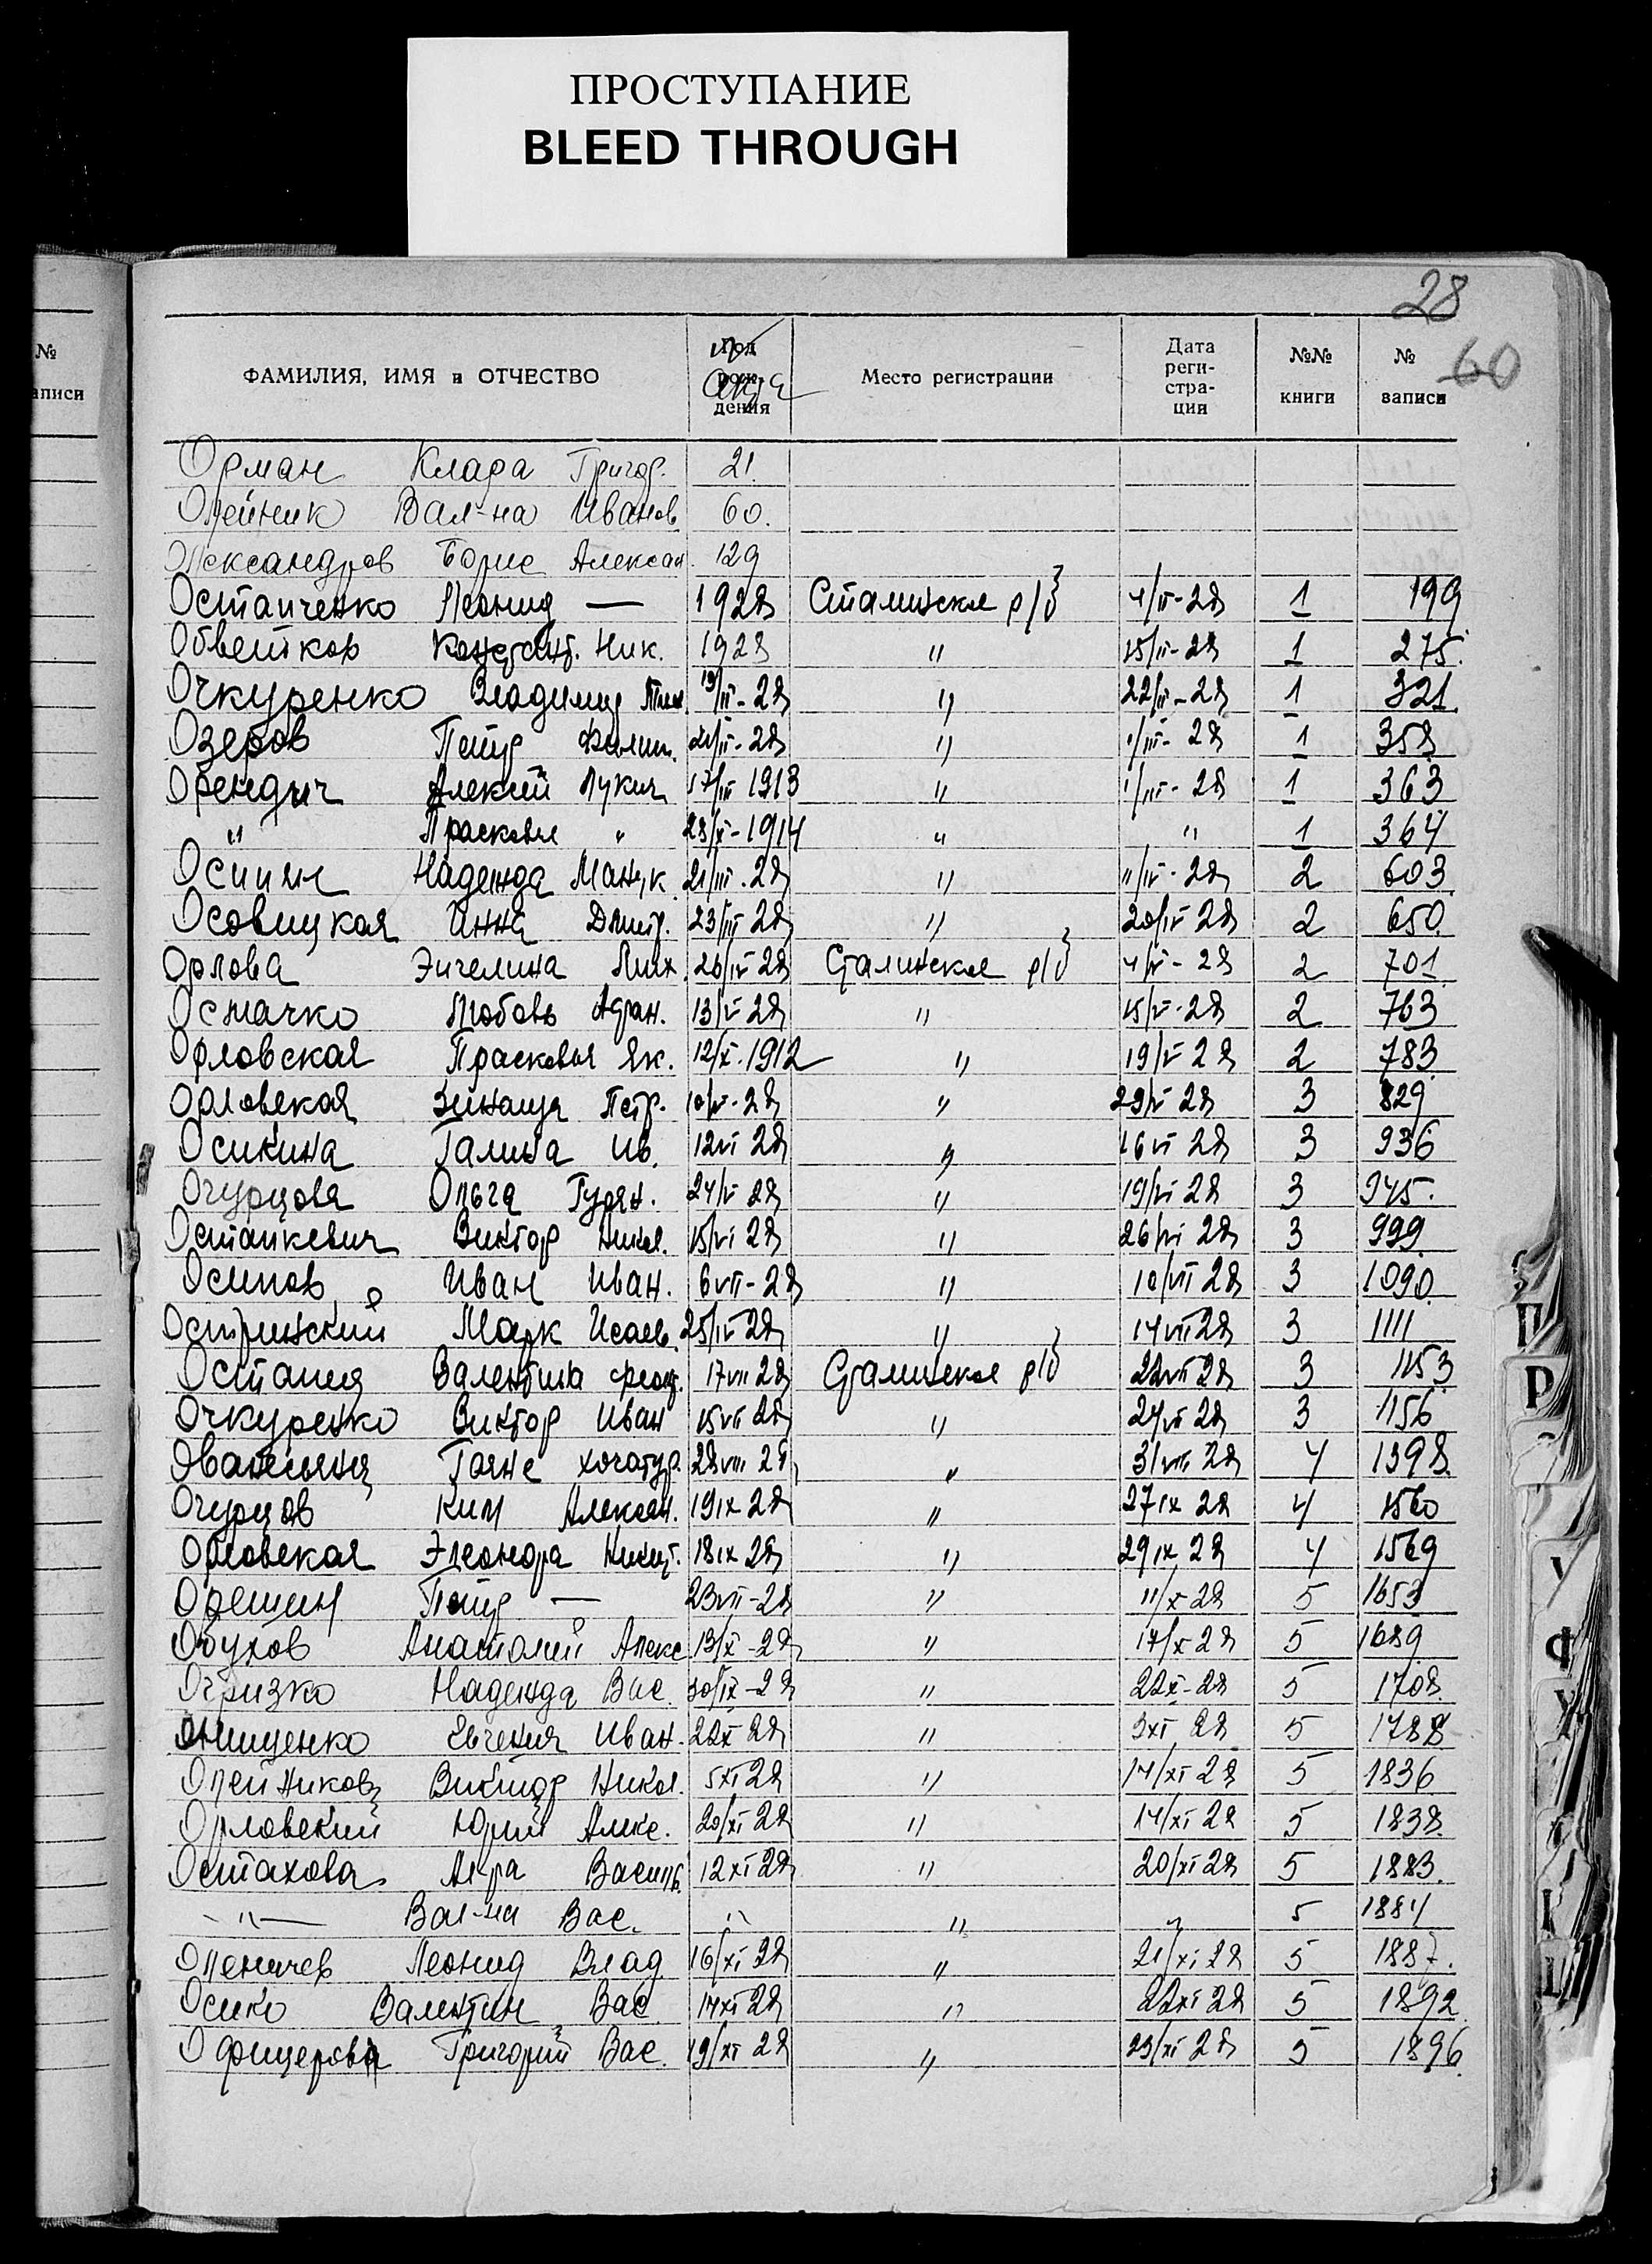 ПРОСТУПАНИЕ
BLEED THROUGH
28
60
№ записи
ФАМИЛИЯ, ИМЯ и ОТЧЕСТВО Год рождения Место регистрации Дата регистрации №№ книги № записи
Орман Клара Григор. 21.
Олейник Вал-на Иванов 60.
Александров Борис Алексан. 129
Остапченко Леонид — 1928 Сталинское р/б 4/II-28 1 199
Обветков Констант. Ник. 1928 " 15/II-28 1 275.
Очкуренко Владимир 19/II-28 " 22/II-28 1 321.
Озеров Петр Филип. 21/II-28 " 1/III-28 1 358
Орендич Алексей Лукич 17/III 1913 " 1/III-28 1 363
" Прасковья " 28/X-1914 " " 1 364
Осипян Надежда Манук. 21/III.28 " 11/IV-28 2 603
Осовицкая Инна Дмитр. 23/III 28 " 20/IV 28 2 650.
Орлова Энгелина Мих. 26/IV 28 Сталинское р/б 4/V-28 2 701
Осмачко Любовь Афан. 13/V 28 " 15/V-28 2 763
Орловская Прасковья Як. 12/X.1912 " 19/V 28 2 783
Орловская Зинаида Петр. 10/V-28 " 29/V 28 3 829
Осикина Галина Ив. 12 VI 28 " 16 VI 28 3 936
Огурцова Ольга Гурян. 24/V 28 " 19/VI 28 3 945.
Остапкевич Виктор Никол. 15/VI 28 " 26/VI 28 3 999
Осипов Иван Иван. 6 VII-28 " 10/VII 28 3 1090.
Остринский Марк Исаев. 25/IV 28 " 14 VII 28 3 1111
Остапия Валентина 17 VII 28 Сталинское р/б 22 VII 28 3 1153
Очкуренко Виктор Иван 15 VII 28 " 24 VII 28 3 1156
Ованесьянц Гаяне Хочатур. 28 VIII 28 " 31 VIII 28 4 1398.
Огурцов Ким Алексан. 19 IX 28 " 27 IX 28 4 1560
Орловская Элеонора Никит. 18 IX 28 " 29 IX 28 4 1569
Орешин Петр — 23 VII-28 " 11/X 28 5 1653
Обухов Анатолий Алекс 13/X-28 " 17/X 28 5 1689
Огризко Надежда Вас. 30/IX-28 " 22 X-28 5 1708.
Онищенко Евгения Иван. 22 X 28 " 3 XI 28 5 1788
Олейников Виктор Никол. 5 XI 28 " 14/XI 28 5 1836
Орловский Юрий Алекс. 20/XI 28 " 14/XI 28 5 1838.
Остахова Василь. 12 XI 28 " 20/XI 28 5 1883.
—"— Вал-на Вас. " " " 5 1884
Опеничев Леонид Влад 16/XI 28 " 21/XI 28 5 1887.
Осико Валентин Вас. 14 XI 28 " 22 XI 28 5 1892
Офицерова Григорий Вас. 19/XI 28 " 23/XI 28 5 1896.
П
Р
У
Ф